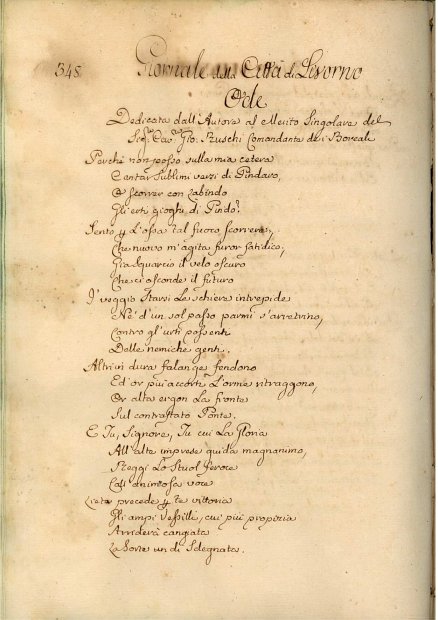 348 Giornale della Città di Livorno
Ode
Dedicata dall'Autore al Merito Singolare del
Sig.r Cav.r Gio. Ruschi Comandante de i Boreali
Perché non posso sulla mia cetera
Cantar sublimi versi di Pindaro,
O scorrer con
Gli erti gioghi di Pindo?
Sento p. l'ossa tal fuoco scorrere,
Che nuovo m'agita furor fatidico;
Già squarcio il velo oscuro
Che ci asconde il futuro
I' veggio starsi le schiere intrepide
Né d'un sol passo parmi s'arretrino,
Contro gl'urti possenti
Delle nemiche genti.
Altri in dura falange fendono
Ed or più accorti l'orme ritraggono,
Or alta ergon la fronte
Sul contrastato Ponte.
E Tu, Signore, Tu cui la Gloria
All'alte imprese guida magnanimo,
Reggi lo stuol feroce
Coll'animosa voce
Lieta precede p. te vittoria
Gli ampi Vessilli, cui più propizia
Arriderà cangiata
La Sorte un dì sdegnata.